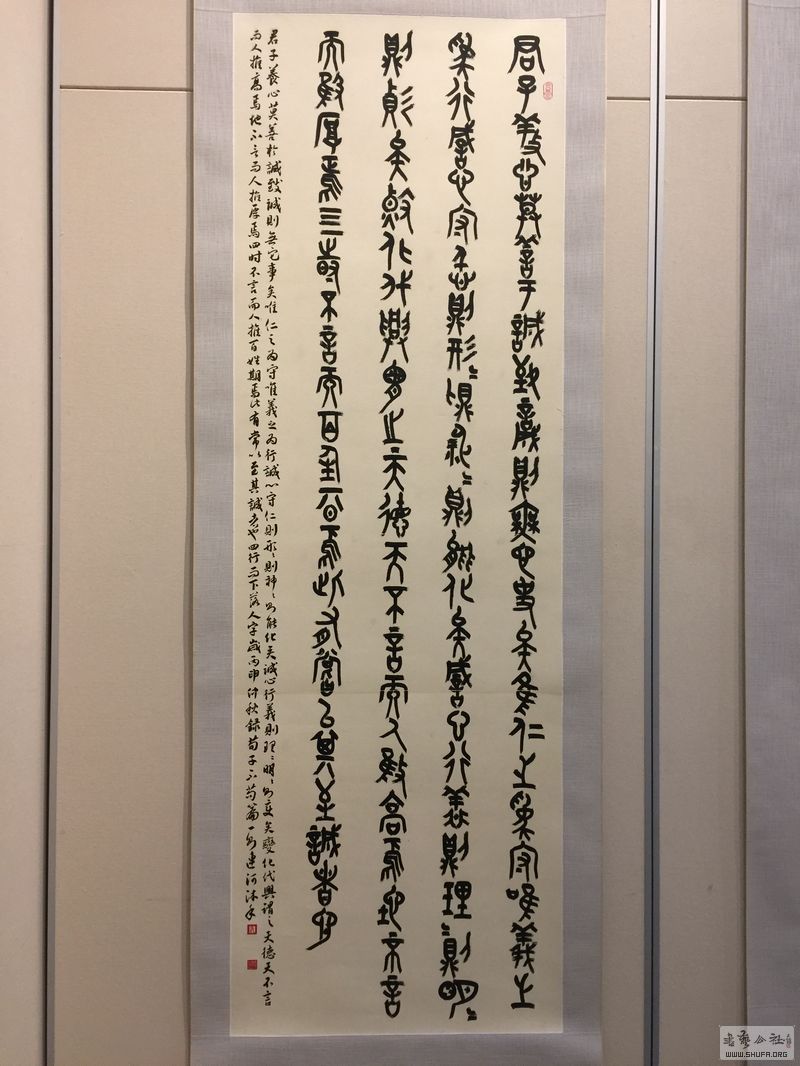 君子養心莫善于誠致誠則無它事矣隹仁之為守唯義之
為行誠心守仁則形=神=則能化矣誠心行義則理=則明=
則變矣變化代興胃之天德天不言而人推高焉地不言
而推厚焉四時不言而百姓期焉此有常以其至誠者也
君子養心莫善於誠致誠則無它事矣唯仁之為守唯義之為行誠心守仁則形、則神、則能化矣誠心行義則理、明、則變矣變化代興謂之天德天不言
而人推高焉地不言而人推厚焉四时不言而人推百姓期焉此有常以至其誠者也四行而下落人字歲丙申仲秋録荀子不苟篇一則連河沐手
書法公社
WWW.SHUFA.ORG